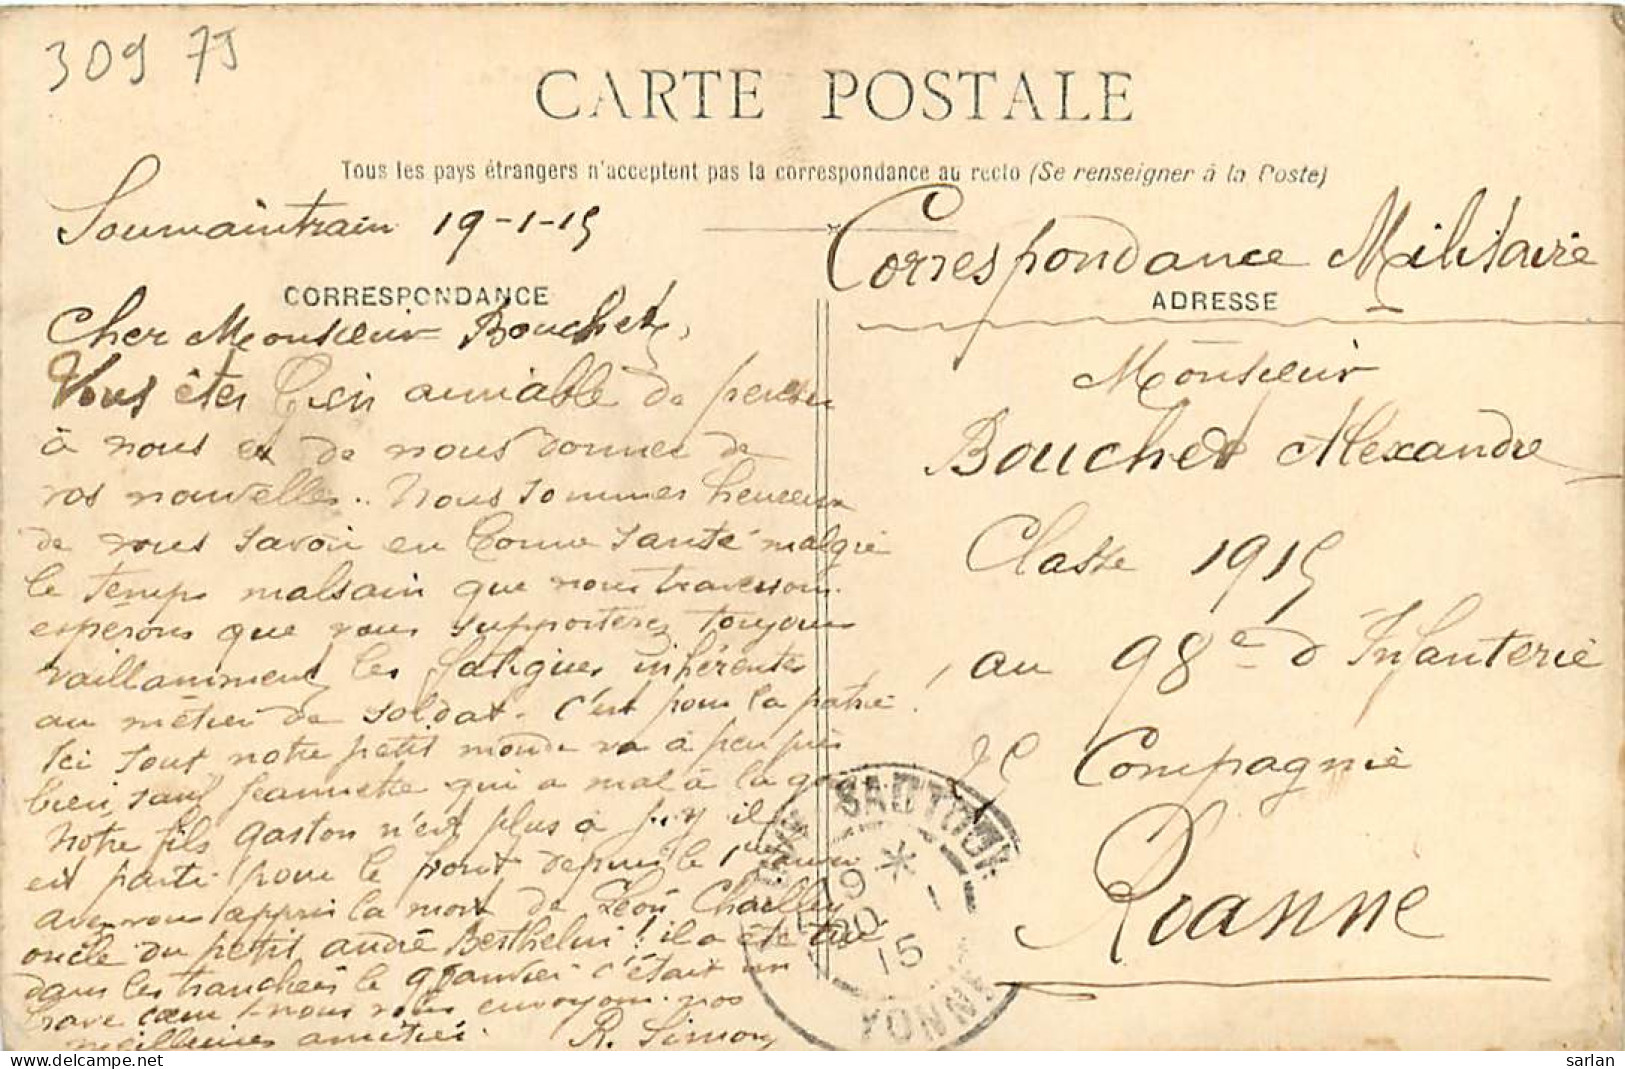 309 75
CARTE POSTALE
Tous les pays étrangers n'acceptent pas la correspondance au recto (Se renseigner à la Poste)
Soumaintrain 19-1-15
CORRESPONDANCE
Cher Monsieur Bouchet,
Vous êtes bien aimable de penser
à nous et de nous donner de
vos nouvelles.. Nous sommes heureux
de vous savoir en bonne santé malgré
le temps malsain que nous traversons.
espérons que vous supporterez toujours
vaillamment les fatigues inhérentes
au métier de soldat. C'est pour la patrie!
Ici tout notre petit monde va à peu près
bien, sauf Jeannette qui a mal à la
Notre fils Gaston n'est plus à il
est parti pour le front depuis le 1er
avez-vous appris la mort de Léon Chailley
oncle du petit andré Berthelin! il a été tué
dans les tranchées le 9 janvier c'était un
brave cœur! nous vous envoyons nos
meilleures amitiés. R. Simon
Correspondance Militaire
ADRESSE
Monsieur
Bouchet Alexandre
Classe 1915
au 98e d'Infanterie
25 Compagnie
Roanne
19 *
20 - 1
15
YONNE
sarlan
delcampe.net